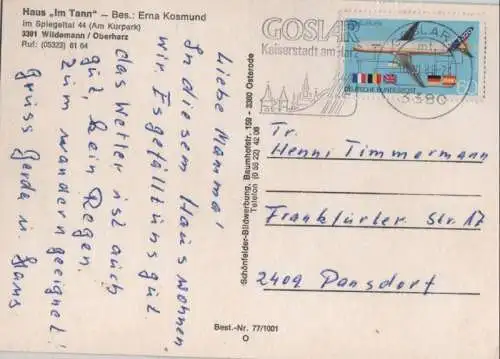 Haus „Im Tann" – Bes.: Erna Kosmund
im Spiegeltal 44 (Am Kurpark)
3391 Wildemann / Oberharz
Ruf: (05323) 61 64
Liebe Mamma!
In diesem Haus wohnen
wir. Es gefällt uns gut
das Wetter ist auch
gut kein Regen.
Zum wandern geeignet!
Gruss Gerda u. Hans
Schönfelder-Bildwerbung, Baumhofstr. 159 - 3360 Osterode
Telefon (0 55 22) 42 06
Best.-Nr. 77/1001
GOSLAR
Kaiserstadt am Harz
GOSLAR
3380
DEUTSCHE BUNDESPOST
60
Fr.
Henni Timmermann
Frankfurter Str. 17
2409 Pansdorf